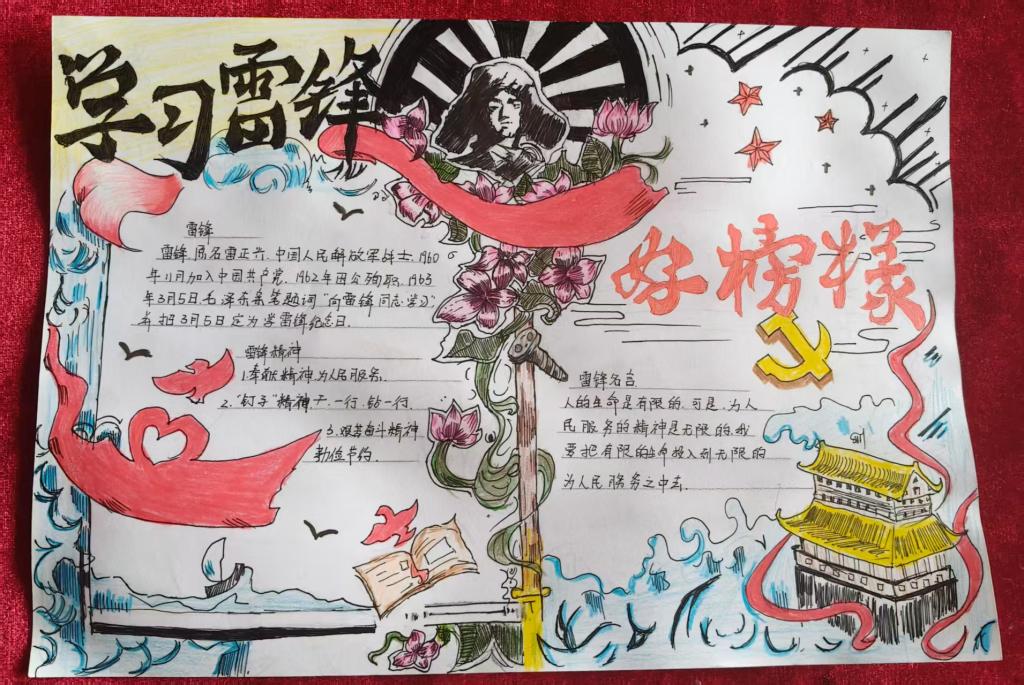 学习雷锋
好榜样
雷锋
雷锋,原名雷正兴,中国人民解放军战士,1960
年11月加入中国共产党,1962年因公殉职,1963
年3月5日毛泽东亲笔题词"向雷锋同志学习"
并把3月5日定为学雷锋纪念日。
雷锋精神
1.奉献精神,为人民服务.
2."钉子"精神,干一行,钻一行.
3.艰苦奋斗精神
勤俭节约.
雷锋名言
人的生命是有限的,可是,为人
民服务的精神是无限的,我
要把有限的生命投入到无限的
为人民服务之中去.